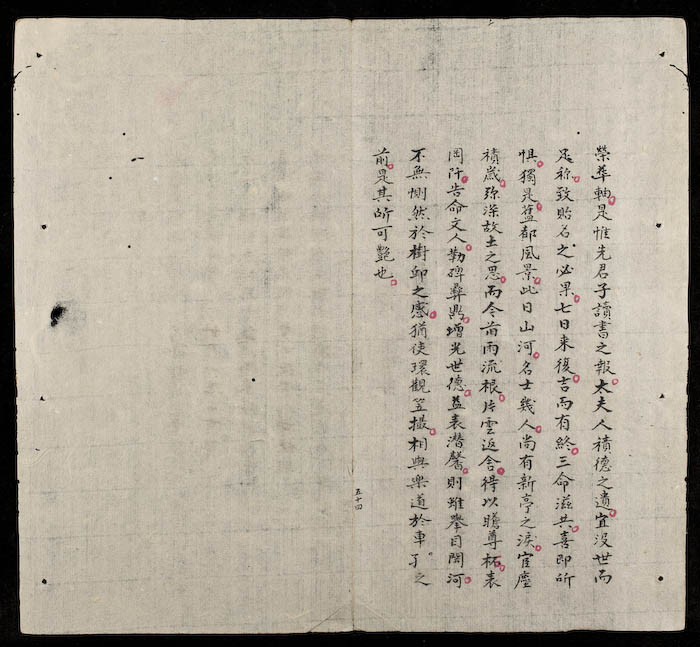 榮葬軸是惟先君子讀書之報太夫人積德之遺宜沒世而
足稱致貽名之必果七日来復吉而有終三命滋共喜即所
惧獨是蓝都風景此日山河名士幾人尚有新亭之淚宦塵
積歲弥深故土之思而今苗雨流根片雲返舍得以瞻尊柘表
岡阡告命文人勒碑彝鼎增光世德益表潜馨則雖舉目関河
不無惻然於樹邱之感猶使環觀笠攝相與樂道於車了之
前是其所可艷也
五十四